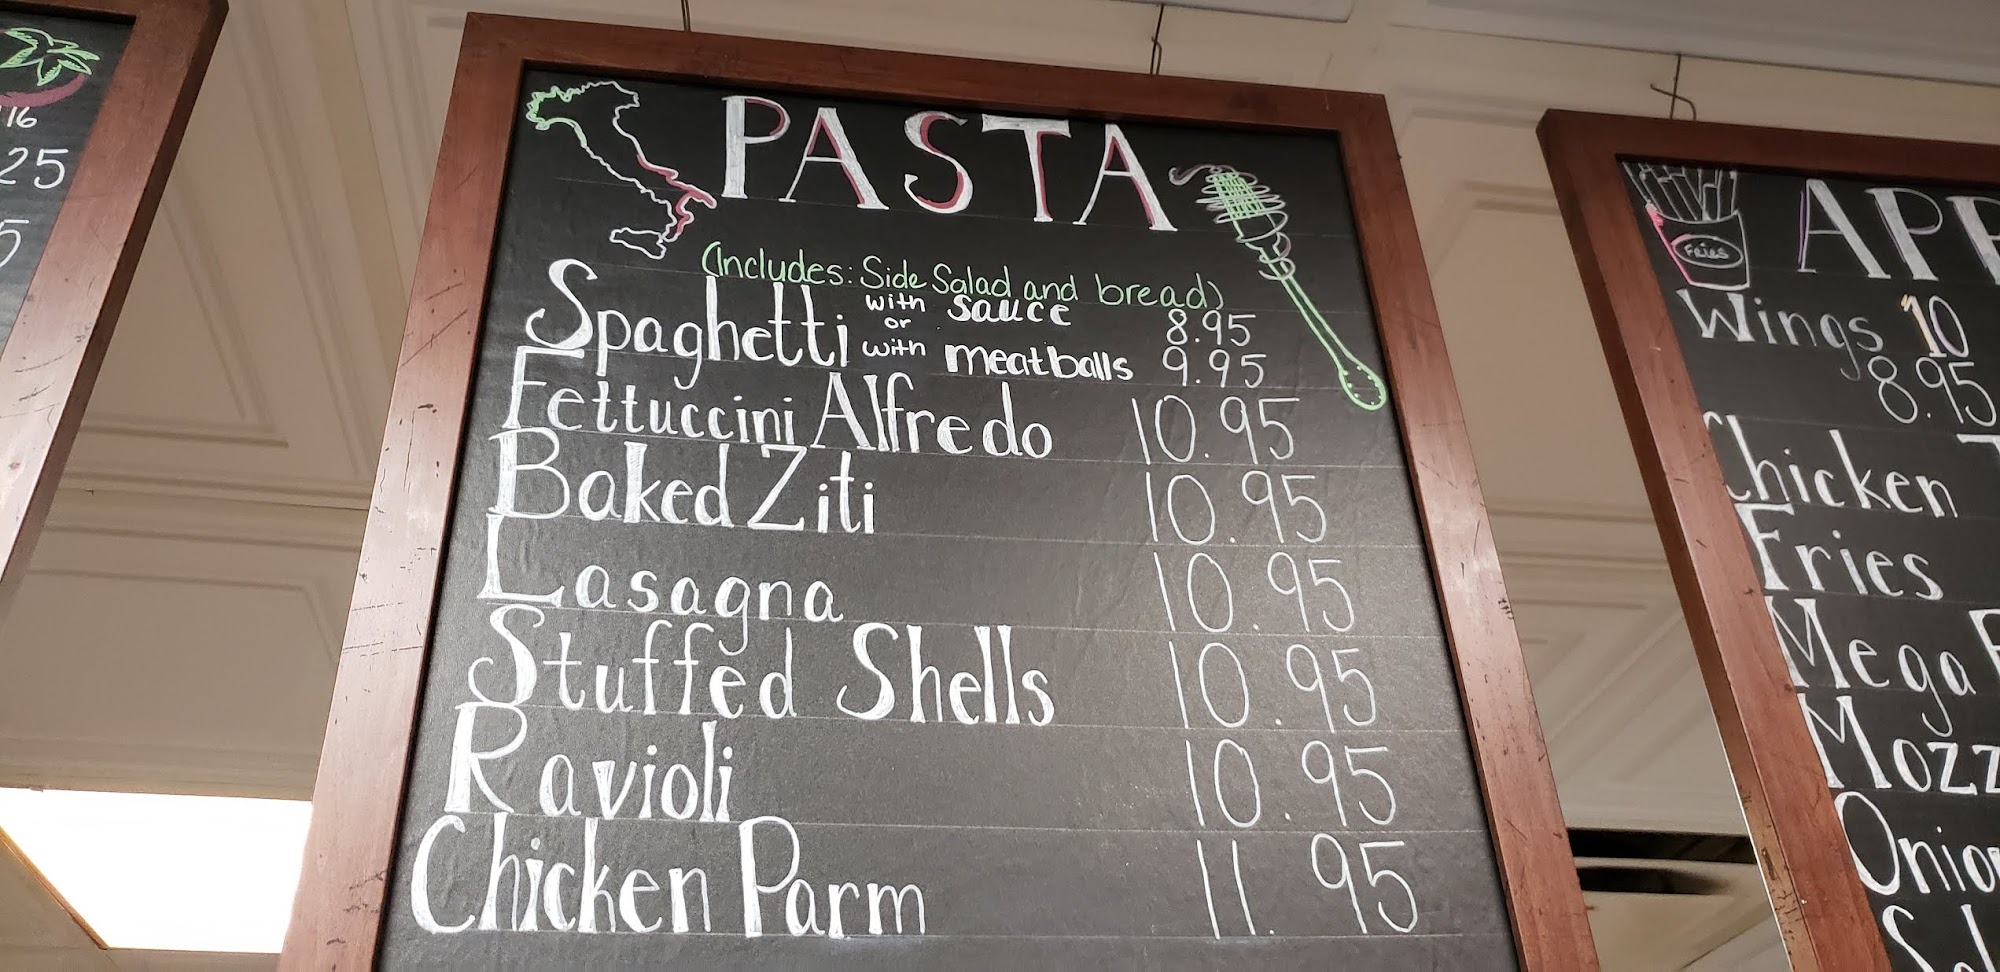 16
25
5
PASTA
(Includes: Side Salad and bread)
Spaghetti with sauce 8.95
or
with meatballs 9.95
Fettuccini Alfredo 10.95
Baked Ziti 10.95
Lasagna 10.95
Stuffed Shells 10.95
Ravioli 10.95
Chicken Parm 11.95
Fries
APP
Wings 10
8.95
Chicken
Fries
Mega
Mozz
Onio